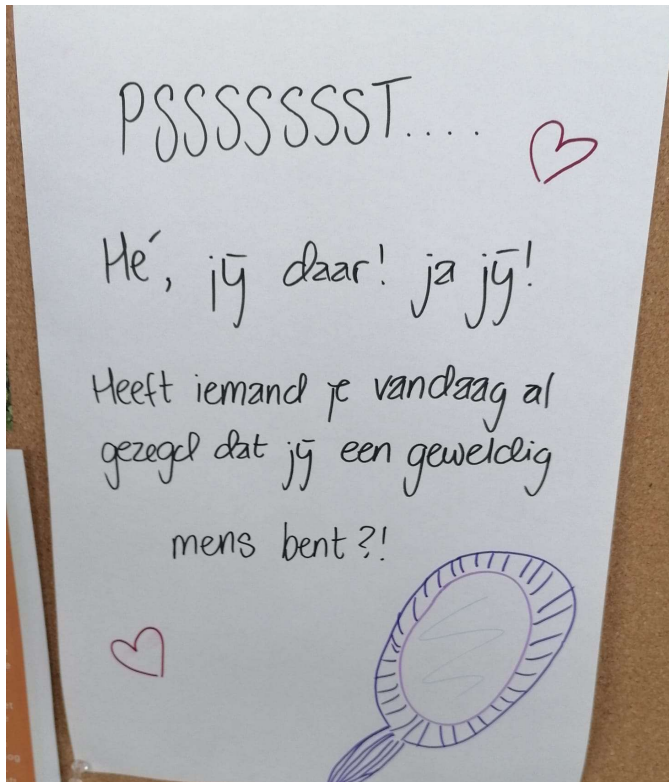 PSSSSSSST....
Hé, jij daar! ja jij!
Heeft iemand je vandaag al
gezegd dat jij een geweldig
mens bent?!